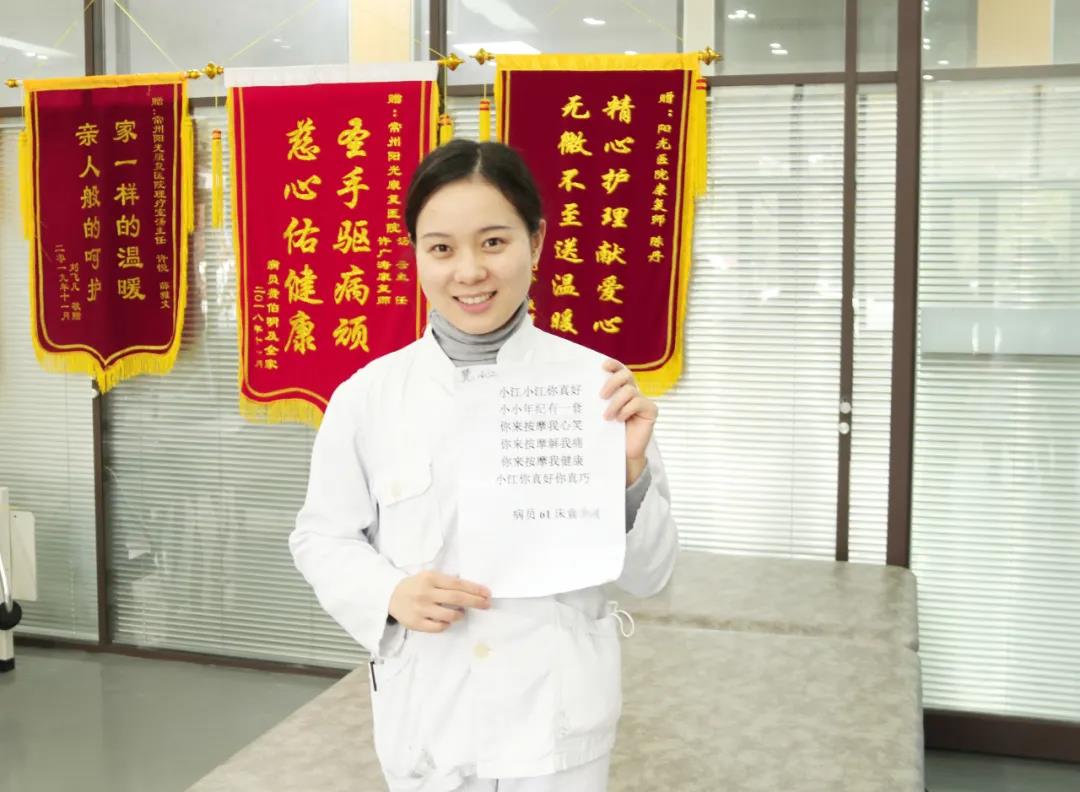 赠：常州阳光康复医院理疗室汤主任 许锐 薛雅文
家一样的温暖
亲人般的呵护
刘飞凡 敬赠
二零一九年十一月
赠：常州阳光康复医院 汤 主任
许广涛康复师
圣手驱病顽
慈心佑健康
病员 伯明及全家
二〇一八年 月
赠：阳光医院康复师 陈丹
精心护理献爱心
无微不至送温暖
小江小江你真好
小小年纪有一套
你来按摩我心笑
你来按摩解我痛
你来按摩我健康
小江你真好你真巧
病员 61 床